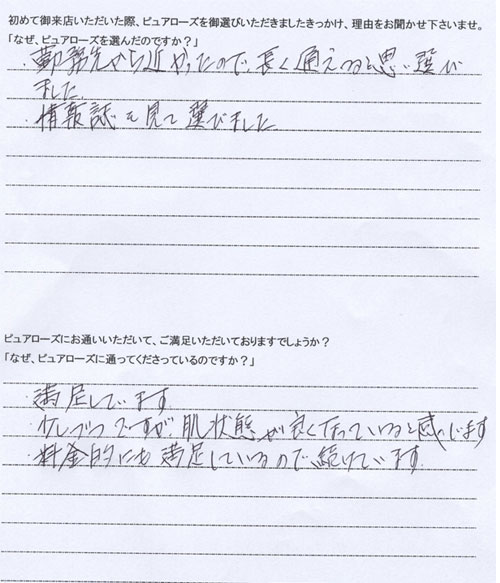 初めて御来店いただいた際、ピュアローズを御選びいただきましたきっかけ、理由をお聞かせ下さいませ。
「なぜ、ピュアローズを選んだのですか？」
・勤務先から近かったので、長く通えると思い選び
ました。
・情報誌を見て選びました
ピュアローズにお通いいただいて、ご満足いただいておりますでしょうか？
「なぜ、ピュアローズに通ってくださっているのですか？」
・満足しています。
・少しづつですが、肌状態が良くなっていると感じます
・料金的にも満足しているので、続けています。